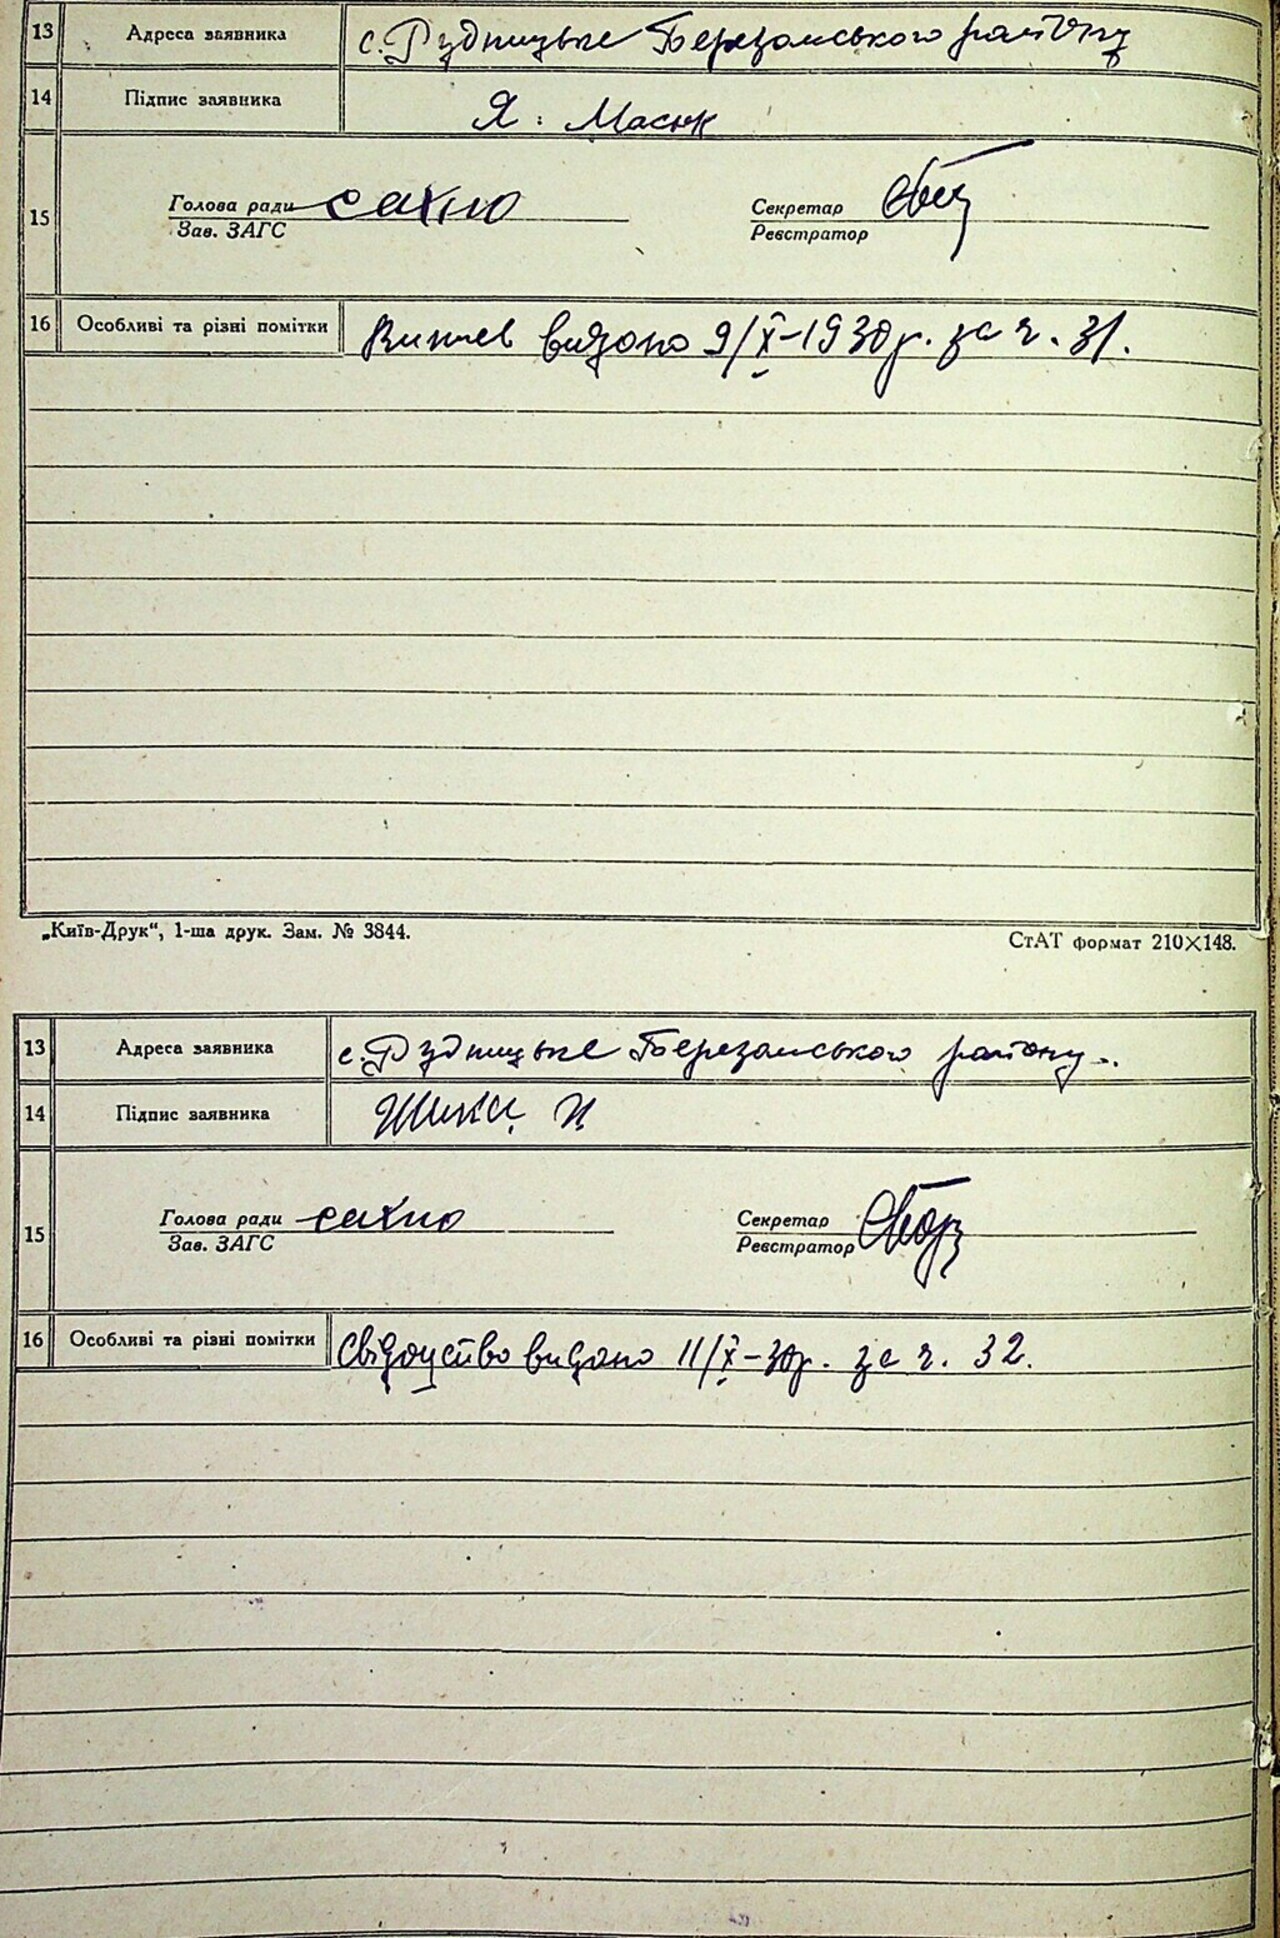 13 Адреса заявника с. Рудницьке Березанського району
14 Підпис заявника Я. Масюк
15 Голова ради сахно Секретар
Зав. ЗАГС Реєстратор
16 Особливі та різні помітки видано 9/X-1930 р. за ч. 31.
„Київ-Друк“, 1-ша друк. Зам. № 3844. СтАТ формат 210×148.
13 Адреса заявника с. Рудницьке Березанського району.
14 Підпис заявника
15 Голова ради сахно Секретар
Зав. ЗАГС Реєстратор
16 Особливі та різні помітки Свідоцтво видано 11/X-30 р. за ч. 32.